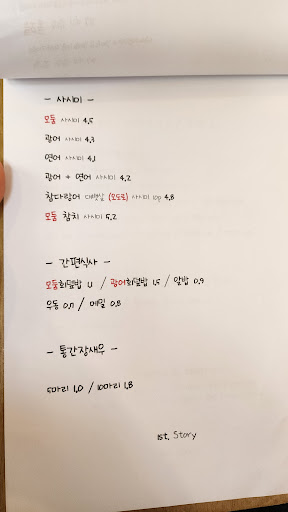 - 사시미 -
모둠 사시미 4.5
광어 사시미 4.3
연어 사시미 4.1
광어 + 연어 사시미 4.2
참다랑어 대뱃살 (오도로) 사시미 top 4.8
모둠 참치 사시미 5.2
- 간편식사 -
모둠회덮밥 1.1 / 광어회덮밥 1.5 / 알밥 0.9
우동 0.7 / 메밀 0.8
- 통간장새우 -
5마리 1.0 / 10마리 1.8
1st. Story